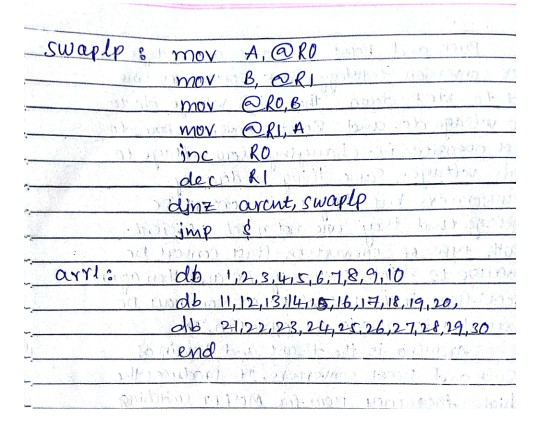 swaplp : mov A, @R0
mov B, @R1
mov @R0, B
mov @R1, A
inc R0
dec R1
djnz arcnt, swaplp
jmp $
arr1: db 1,2,3,4,5,6,7,8,9,10
db 11,12,13,14,15,16,17,18,19,20,
db 21,22,23,24,25,26,27,28,29,30
end